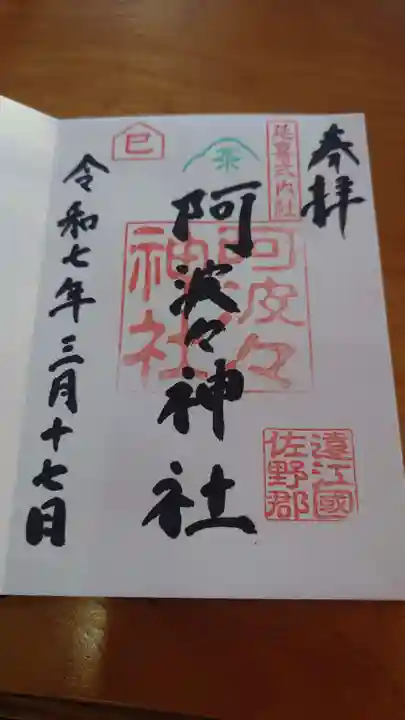 奉拝
延喜式内社
茶
阿波々神社
阿波々
神社
遠江國
佐野郡
巳
令和七年三月十七日